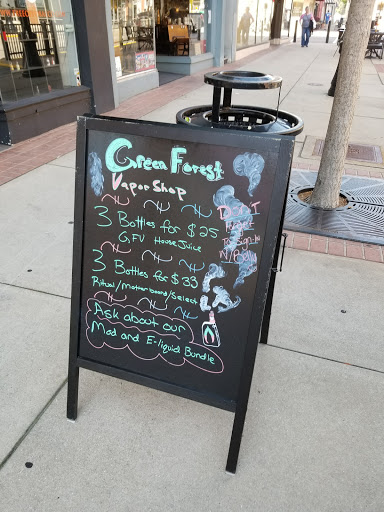 Green Forest
Vapor Shop
3 Bottles for $25
GFV House Juice
3 Bottles for $33
Ritual/Motherboard/Select
Ask about our
Mod and E-liquid Bundle